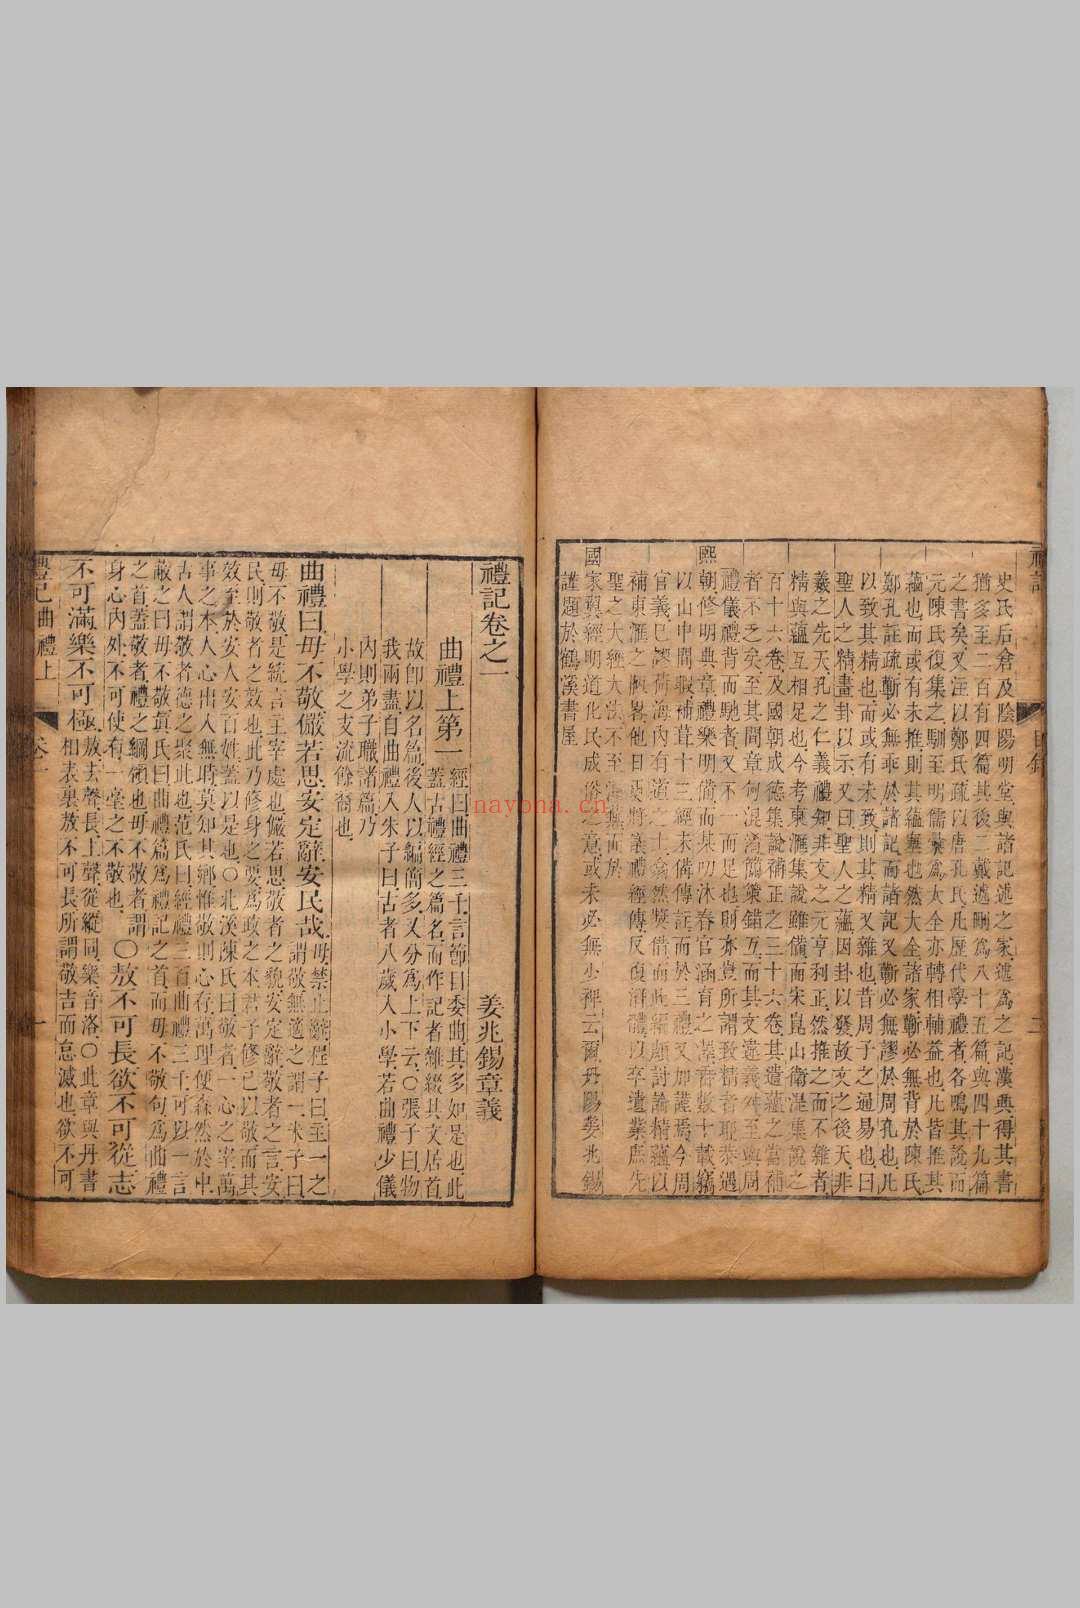 史氏后倉及陰陽明堂與諸記述之家遞為之記漢興得其書
猶多至二百有四篇其後二戴遞刪為八十五篇與四十九篇
之書矣又注以鄭氏疏以唐孔氏凡歷代學禮者各鳴其說而
元陳氏復集之馴至明儒彙為大全亦轉相輔益也凡皆推其
蘊也而或有未推則其蘊棄也然大全諸家蘄必無背於陳氏
鄭孔註疏蘄必無乖於諸記而諸記又蘄必無謬於周孔也凡
以致其精也而或有未致則其精又雜也昔周子之通易也曰
聖人之精畫卦以示又曰聖人之蘊因卦以發故文之後天非
羲之先天孔之仁義禮知非文之元亨利正然推之而不雜者
精與蘊互相足也今考東滙集說雖備而宋崑山衛湜集說之
百十六卷及國朝成德集說補正之三十六卷其遺蘊之當補
者不乏矣至其間章句混淆簡策錯互而其文違義舛至與周
禮儀禮背而馳者又不一而足也則亦豈所謂致精者耶恭遇
熙朝修明典章禮樂明備而某叨沐春官涵育之澤者數十載竊
以山中間暇補葺十三經未備傳註而於三禮又加謹焉今周
官義已謬荷海內有道之士翕然獎借而此編頗討論精蘊以
補東滙之
聖之大經大法不至
國家翼經明道化民成俗之意或未必無少裨云爾丹陽姜兆錫
謹題於鶴溪書屋
禮記卷之一
姜兆錫章義
曲禮上第一
經曰曲禮三千言節目委曲其多如是也此
蓋古禮經之篇名而作記者雜綴其文居首
故卽以名篇後人以編簡多又分為上下云〇張子曰物
我兩盡自曲禮入朱子曰古者八歲入小學若曲禮少儀
內則弟子職諸篇乃
小學之支流餘裔也
曲禮曰毋不敬儼若思安定辭安民哉
毋禁止辭程子曰主一之
謂敬無適之謂一朱子曰
毋不敬是統言主宰處也儼若思敬者之貌安定辭敬者之言安
民則敬者之效也此乃修身之要為政之本君子修己以敬而其
效至於安人安百姓蓋以是也〇北溪陳氏曰敬者一心之宰萬
事之本人心出入無時莫知其鄉惟敬則心存萬理便森然於中
古人謂敬者德之聚此也范氏曰經禮三百曲禮三千可以一言
蔽之曰毋不敬眞氏曰曲禮篇為禮記之首而毋不敬句為曲禮
之首蓋敬者禮之綱領也毋不敬者謂
身心內外不可使有一毫之不敬也
〇敖不可長欲不可從志
不可滿樂不可極
敖去聲長上聲從縱同樂音洛〇此章與丹書
相表裏敖不可長所謂敬吉而怠滅也欲不可
禮記曲禮上
卷一
一
nayona.cn